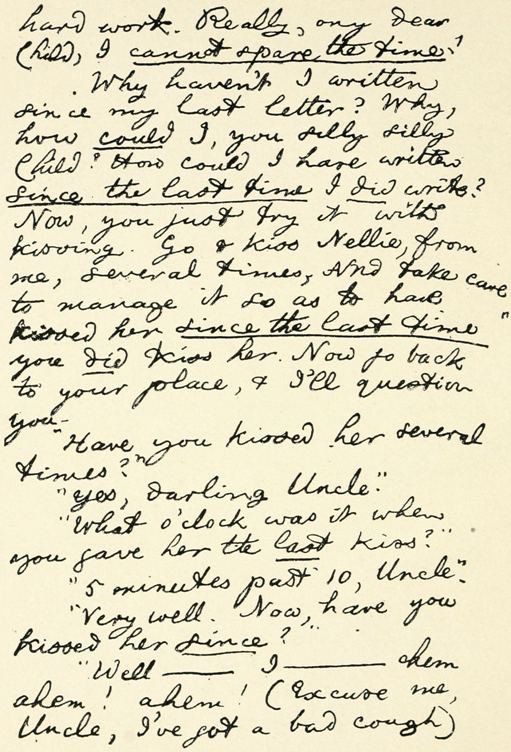 hard work. Really, my dear
Child, I cannot spare the time."
Why haven't I written
since my last letter? Why,
how could I, you silly silly
Child? How could I have written
since the last time I did write?
Now, you just try it with
kissing. Go & kiss Nellie, from
me, several times, and take care
to manage it so as to have
kissed her since the last time
you did kiss her. Now go back
to your place, & I'll question
you.
"Have you kissed her several
times?"
"Yes, darling Uncle."
"What o'clock was it when
you gave her the last kiss?"
"5 minutes past 10, Uncle."
"Very well. Now, have you
kissed her since?"
"Well —— I —— ahem
ahem! ahem! (Excuse me,
Uncle, I've got a bad cough)